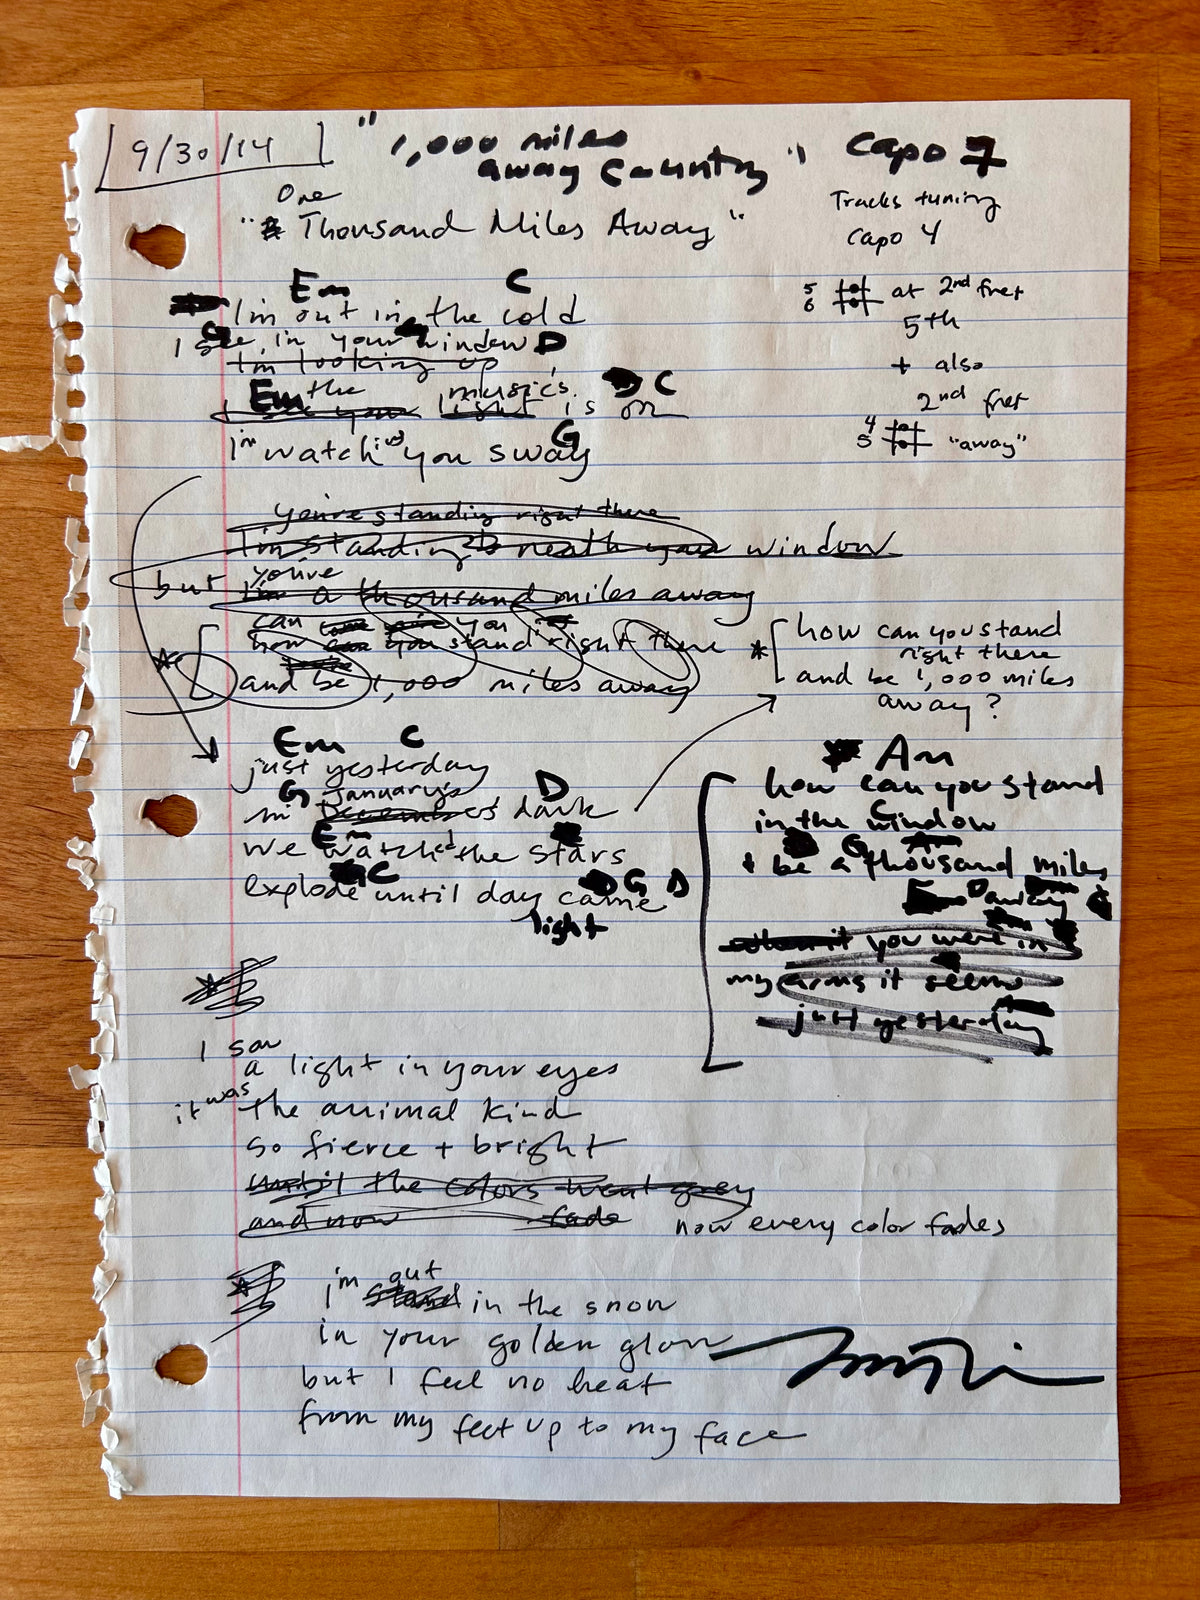 9/30/14
" 1,000 miles
away Country "
Capo 7
One
" Thousand Miles Away "
Tracks tuning
capo 4
5
6 at 2nd fret
5th
+ also
2nd fret
4
5 "away"
Em C
I'm out in the cold
G D
I see in your window
I'm looking up
Em the music's C
light is on
G
I'm watching you sway
you're standing right there
I'm standing neath your window
but you're
I'm a thousand miles away
can you
how can you stand right there
* and be 1,000 miles away
* how can you stand
right there
and be 1,000 miles
away?
Em C
just yesterday
G January's D
in December's dark
Em
we watched the stars
C G D
explode until day came
light
Am
how can you stand
C
in the window
G
+ be a thousand miles
D away
when it you were in
my arms it seems
just yesterday
*
I saw
a light in your eyes
it was the animal kind
so fierce + bright
until the colors went grey
and now fade now every color fades
*
I'm out
stand in the snow
in your golden glow
but I feel no heat
from my feet up to my face